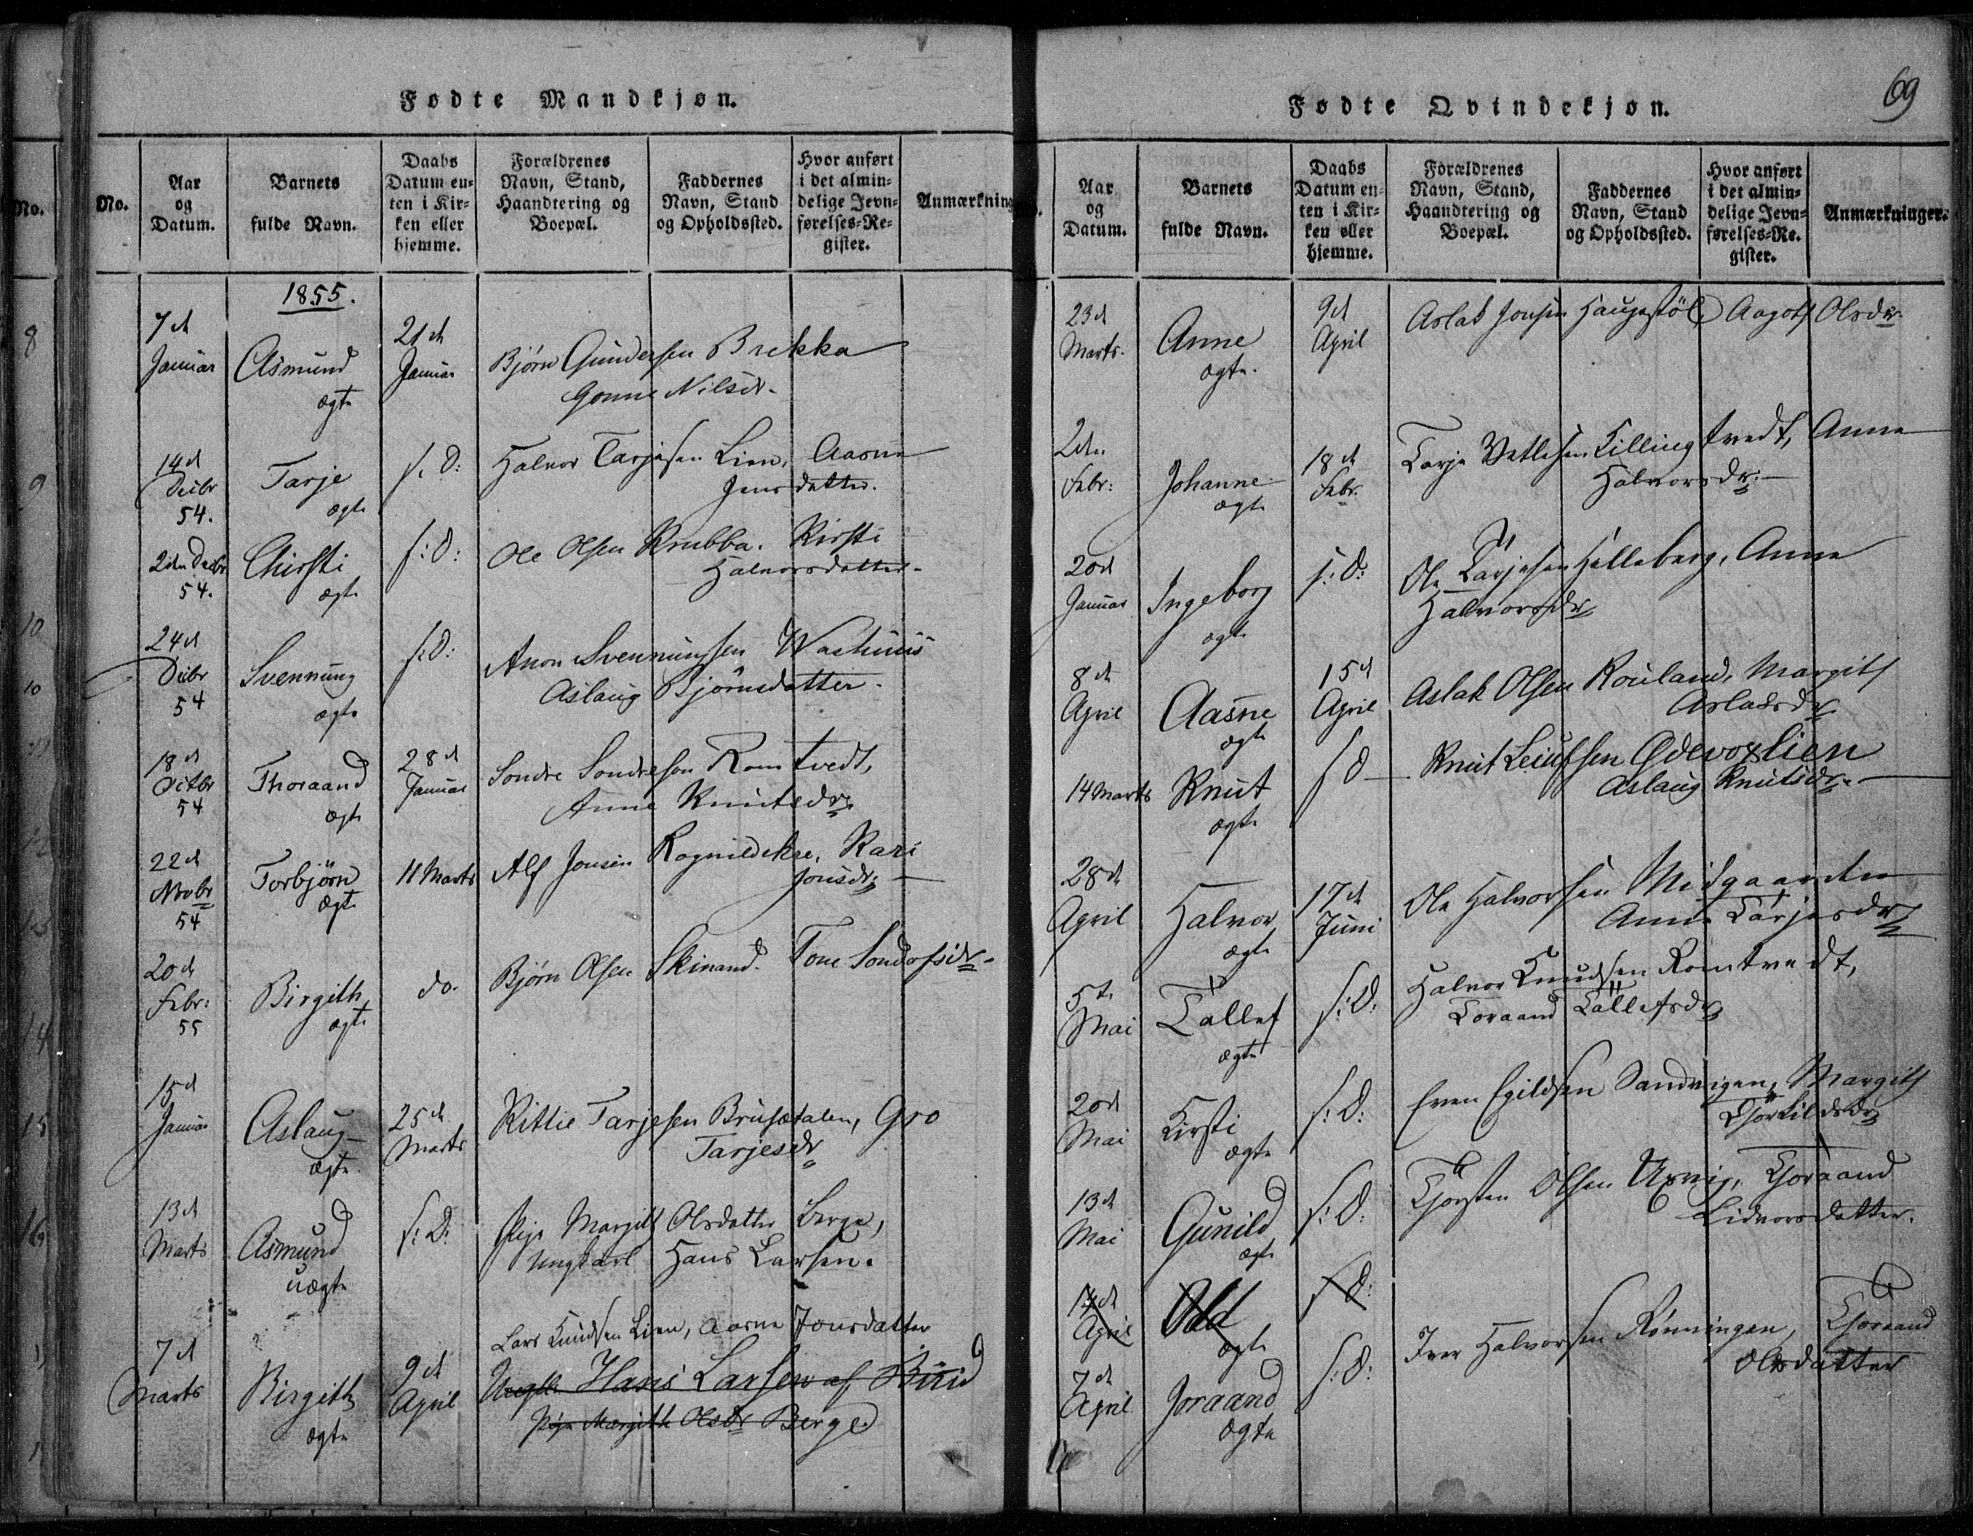 Fødte Mandkjøn.
No.
Aar og Datum.
Barnets fulde Navn.
Daabs Datum enten i Kirken eller hjemme.
Forældrenes Navn, Stand, Haandtering og Boepæl.
Faddernes Navn, Stand og Opholdssted.
Hvor anført i det almindelige Jevnførelses-Register.
Anmærkning
1855.
7d Januar Asmund ægte 21d Januar Bjørn Gundersen Brekka
Gonne Nilsdr.
14d Decbr 54. Tarje ægte s. D: Halvor Tarjesen Lien, Aasne
Jensdatter.
2den Decbr 54. Chirsti ægte s: D: Ole Olsen Krubba. Kirsti
Halvorsdatter.
24d Decbr 54 Svennung ægte s: D: Anon Svennungsen Waahuus
Aslaug Bjørnsdatter.
18d Octbr 54 Thoraand ægte 28d Januar Sondre Sondresen Romtvedt,
Anne Knutsdr.
22d Novbr 54 Torbjørn ægte 11 Marts Alf Jonsen Rognildekre, Kari
Jonsdr.
20d Febr: 55 Birgith ægte do. Bjørn Olsen Skinand. Tone Sondresdr.
15d Januar Aslaug ægte 25d Marts Kittil Tarjesen Brusetalen, Gro
Tarjesdr
13d Marts Asmund uægte s: D: Pige Margith Olsdatter Berge,
Ungkarl Hans Larsen.
Lars Knudsen Lien, Aasne Jonsdatter
7d Marts Birgith ægte 9d April Ungk. Hans Larsen af Bund
Pige Margith Olsdr Berge
Fødte Qvindekjøn.
69
Aar og Datum.
Barnets fulde Navn.
Daabs Datum enten i Kirken eller hjemme.
Forældrenes Navn, Stand, Haandtering og Boepæl.
Faddernes Navn, Stand og Opholdssted.
Hvor anført i det almindelige Jevnførelses-Register.
Anmærkninger.
23d Marts. Anne ægte. 9d April Aslak Jonsen Haugestøl, Aagoth Olsdr.
2den Febr: Johanne ægte 18d Febr. Tarje Vetlesen Killingtvedt, Anne
Halvorsdr.
20d Januar Ingeborg ægte s: D: Ole Tarjesen Helleberg, Anne
Halvorsdr
8d April Aasne ægte 15d April Aslak Olsen Rouland, Margith
Aslaksdr.
14 Marts Knut ægte s D Knut Leiufsen Ødevoxlien
Aslaug Knutsdr.
28d April Halvor ægte 17d Juni Ole Halvorsen Midgaarden
Anne Tarjesdr
5te Mai Tallef ægte s: D: Halvor Knudsen Romtvedt,
Toraand Tallefsdr
20d Mai Kirsti ægte s: D: Even Egildsen Sandvigen, Margith
Thorkildsdr
13d Mai Gunild ægte s: D: Thorsten Olsen Uxvig, Thoraand
Lidvorsdatter.
14d April Old ægte s D:
7d April Joraand ægte s: D: Iver Halvorsen Rønningen, Thoraand
Olsdatter